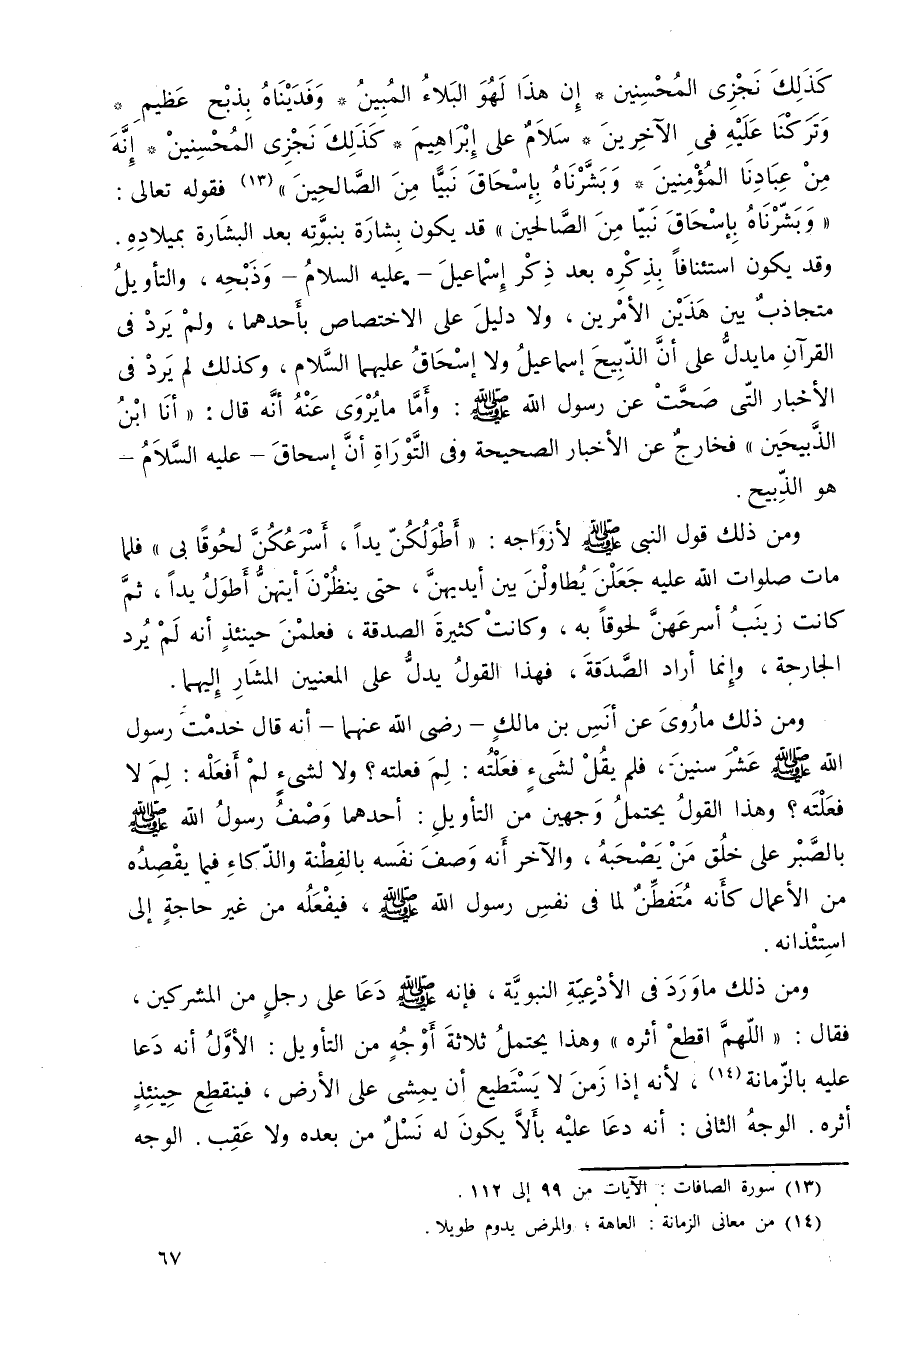 كَذَلِكَ نَجْزِى المُحْسِنِين * إِن هذَا لَهُوَ البَلاءُ المُبِينُ * وَفَدَيْنَاهُ بِذبْح عَظِيمٍ *
وَتَرَكْنَا عَلَيْهِ فى الآخِرِينَ * سَلاَمٌ على إِبْرَاهِيمَ * كَذَلِكَ نَجْزِى المُحْسِنِينْ * إِنَّهُ
مِنْ عِبَادِنَا المُؤْمِنينَ * وَبَشَّرْنَاهُ بِإسْحَاقَ نَبيًّا مِنَ الصَّالحِينَ » (١٣) فقوله تعالى :
« وَبَشّرْنَاهُ بِإسْحَاقَ نَبيّا مِنَ الصَّالحين » قد يكون بِشارَة بنبوَّته بعد البشارة بميلادِهِ .
وقد يكون استئنافاً بِذكْرِه بعد ذِكْر إسْماعيلَ – عليه السلامُ – وَذَبْحِه ، والتأويلُ
متجاذبٌ بين هَذَيْن الأمْرين ، ولا دليلَ على الاختصاص بأَحدهما ، ولمْ يَردْ فى
القرآنِ مايدلُّ على أنَّ الذّبِيحَ إسماعيلُ ولا إسْحَاقُ عليهما السَّلام ، وكذلك لم يَردْ فى
الأخبار التّى صَحَّتْ عن رسول الله ﷺ : وأَمَّا مايُرْوَى عَنْهُ أنَّه قال : « أنَا ابْنُ
الذَّبيحَين » فخارجٌ عن الأخبار الصحيحة وفى التَّوْرَاةِ أنَّ إسحاقَ – عليه السَّلاَمُ –
هو الذّبِيح .
ومن ذلك قول النبى ﷺ لأزوَاجه : « أَطْوَلُكُنّ يداً ، أَسْرَعُكُنَّ لحُوقًا بى » فلما
مات صلوات الله عليه جَعَلْنَ يُطاولْنَ بين أيديهنَّ ، حتى ينظُرْنَ أيتهنُّ أطوَلُ يداً ، ثمَّ
كانت زينَبُ أسرعَهنَّ لحوقاً به ، وكانتْ كثيرةَ الصدقة ، فعلمْنَ حينئذٍ أنه لَمْ يُرد
الجارحة ، وإنما أراد الصَّدَقةَ ، فهذا القولُ يدلُّ على المعنيين المشَارِ إليهما .
ومن ذلك مارُوىَ عن أنَسِ بن مالكٍ – رضى الله عنهما – أنه قال خدمْتُ رسول
الله ﷺ عَشْرَ سنينَ ، فلم يقُلْ لشَىءٍ فعَلْتُه : لِمَ فعلته ؟ ولا لشىءٍ لمْ أَفعَلْه : لِمَ لا
فعَلْتَه ؟ وهذا القولُ يحتملُ وَجهين من التأويلِ : أحدهما وَصْفُ رسولُ الله ﷺ
بالصَّبْر على خلُق مَنْ يَصْحَبَهُ ، والآخر أَنه وَصفَ نفَسه بالفِطْنة والذّكاءِ فيما يقْصِدُه
من الأعمال كأَنه مُتَفطِّنٌ لما فى نفسِ رسول الله ﷺ ، فيفْعَلُه من غير حاجةٍ إلى
استِئْذانه .
ومن ذلك ماوَرَدَ فى الأدْعِيَةِ النبويَّة ، فإنه ﷺ دَعَا على رجلٍ من المشركين ،
فقال : « اللّهمَّ اقطعْ أثره » وهذا يحتملُ ثلاثةَ أَوْجُهٍ من التأويل : الأوَّلُ أنه دَعا
عليه بالزّمانة (١٤) ، لأنه إذا زَمنَ لا يَسْتَطيع أن يمشى على الأرض ، فينقطع حِينئِذٍ
أثره . الوجهُ الثانى : أنه دعَا عليْه بأَلاَّ يكونَ له نَسْلٌ من بعده ولا عَقِب . الوجه
(١٣) سورة الصافات : الآيات من ٩٩ إلى ١١٢ .
(١٤) من معانى الزمانة : العاهة ؛ والمرض يدوم طويلا .
٦٧